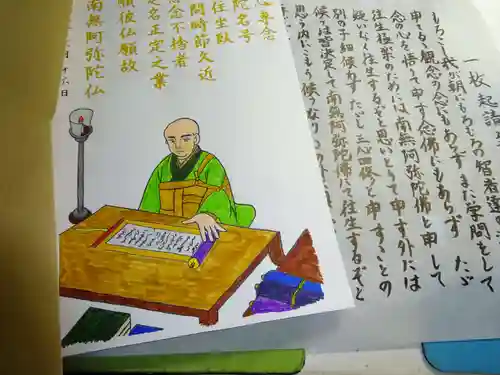 一枚起請
もろこし我が朝にもろもろの智者達の
申さるる観念の念にもあらず また学問をして
念の心を悟りて申す念佛にもあらず ただ
往生極楽のためには南無阿弥陀佛と申して
疑いなく往生するぞと思いとりて申す外には
別の子細候わず ただし三心四修と申すことの
候うは皆決定して南無阿弥陀佛にて往生するぞと
思う内にこもり候うなり
心専念
陀名号
住坐臥
問時節久近
念不捨者
名正定之業
順彼仏願故
南無阿弥陀仏
月 十六日